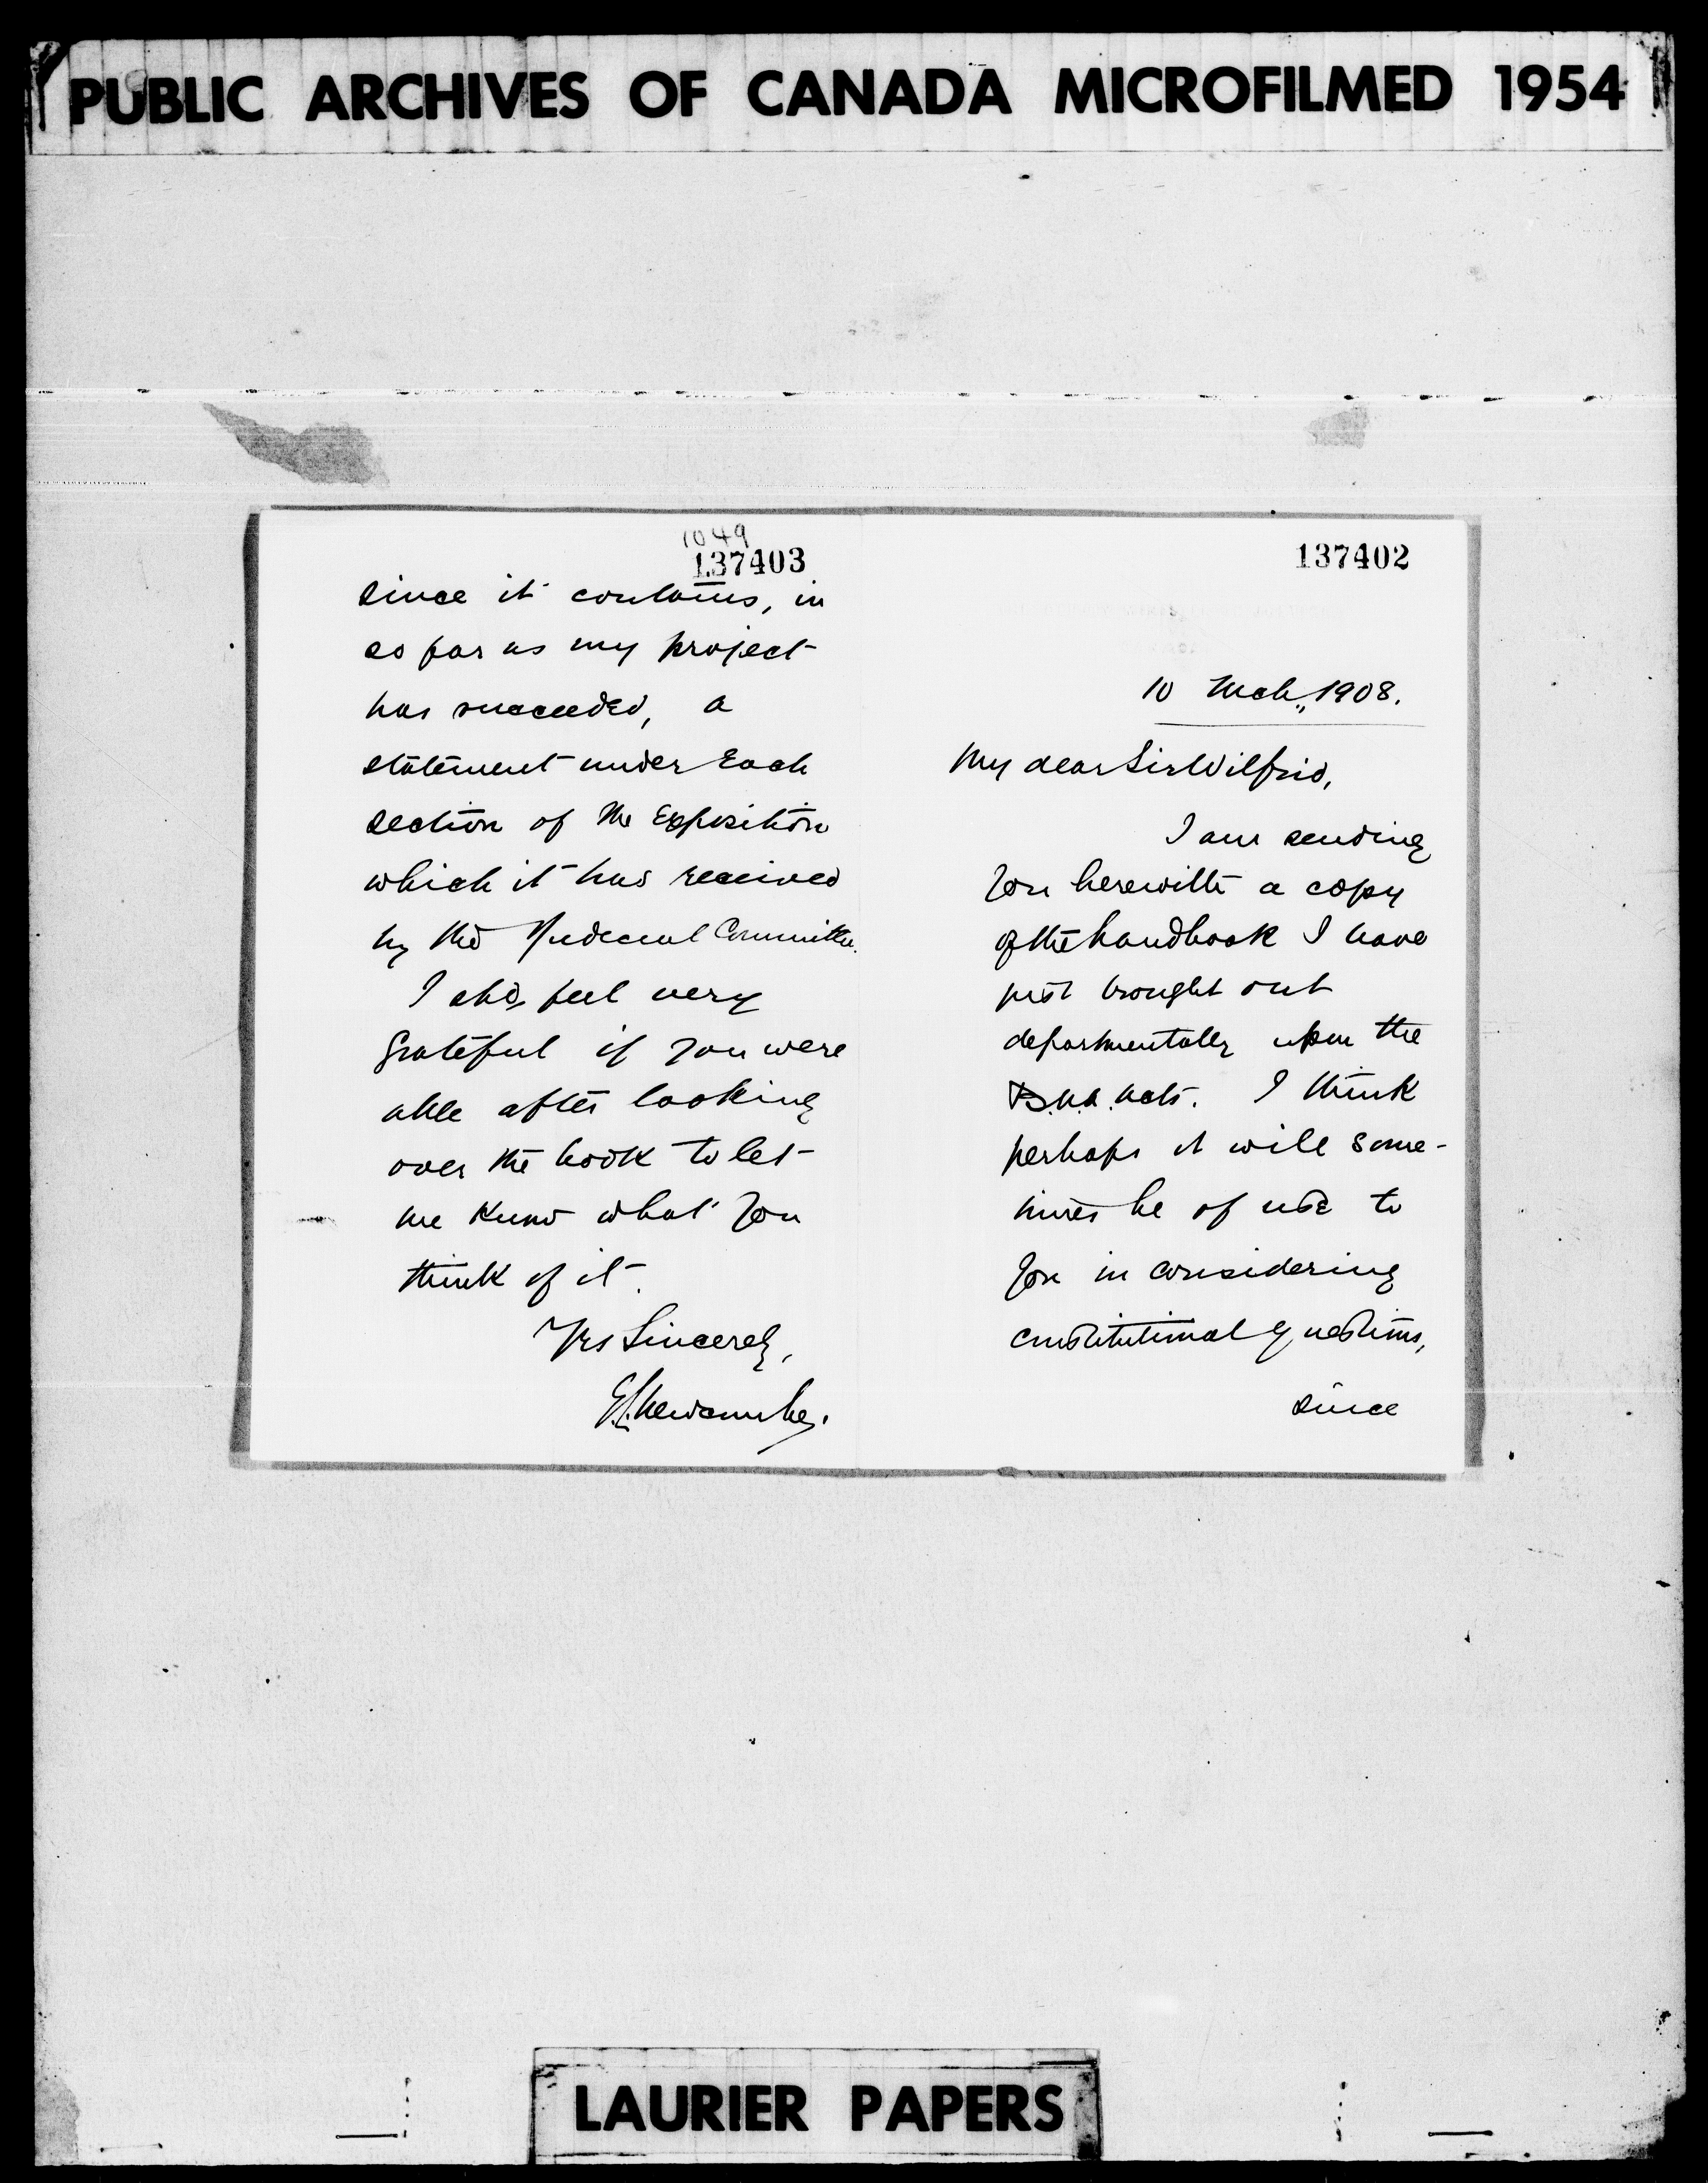 PUBLIC ARCHIVES OF CANADA MICROFILMED 1954
1049
137403
since it contains, in
so far as my project
has succeeded, a
statement under each
section of the Exposition
which it has received
by the Judicial Committee.
I shd. feel very
grateful if you were
able after looking
over the book to let
me know what you
think of it.
Yrs Sincerely,
E.L. Newcombe.
137402
10 Mch., 1908.
My dear Sir Wilfrid,
I am sending
you herewith a copy
of the handbook I have
just brought out
departmentally upon the
B.N.A. Acts. I think
perhaps it will some-
times be of use to
you in considering
constitutional questions,
since
LAURIER PAPERS